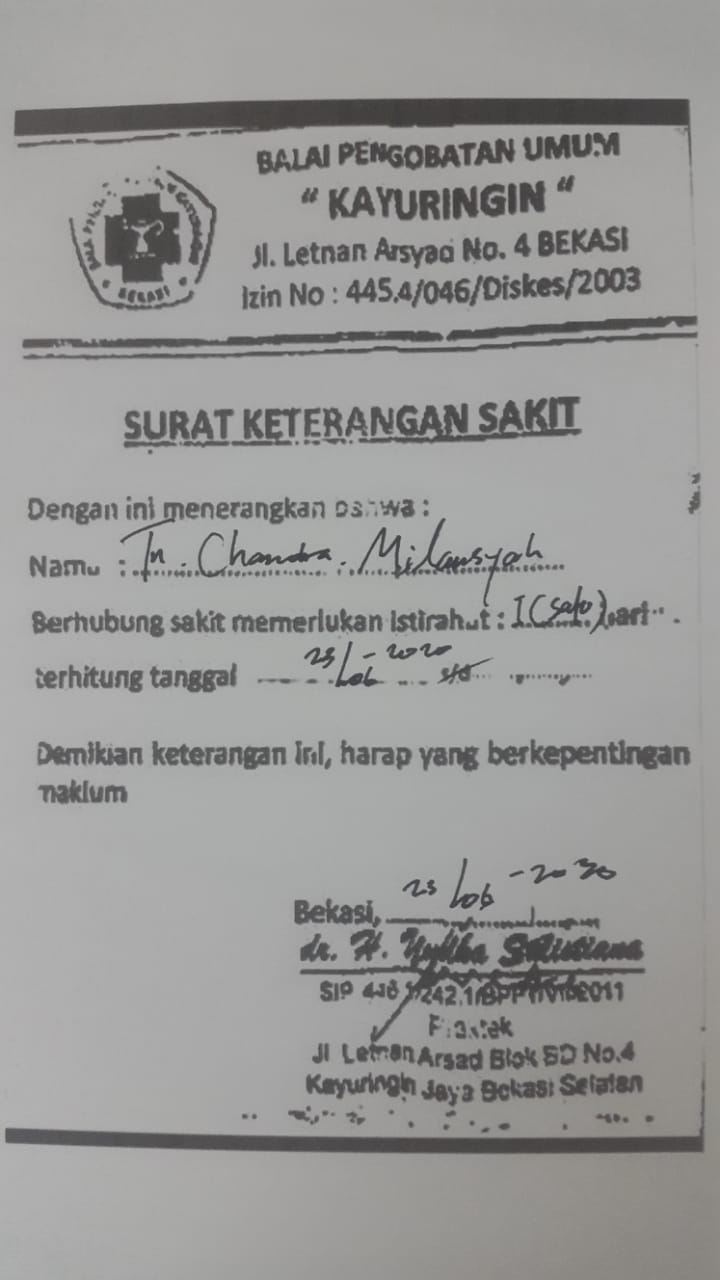 BALAI PENGOBATAN UMUM
" KAYURINGIN "
Jl. Letnan Arsyad No. 4 BEKASI
Izin No : 445.4/046/Diskes/2003
BEKASI
SURAT KETERANGAN SAKIT
Dengan ini menerangkan bahwa :
Nama : Tn. Chandra. Milansyah
Berhubung sakit memerlukan istirahat : I (satu) hari
terhitung tanggal 23/06-2020 s/d
Demikian keterangan ini, harap yang berkepentingan
maklum
Bekasi, 23/06-2020
dr. H. Sulistiana
SIP 2011
Praktek
Jl Letnan Arsad Blok BD No.4
Kayuringin Jaya Bekasi Selatan